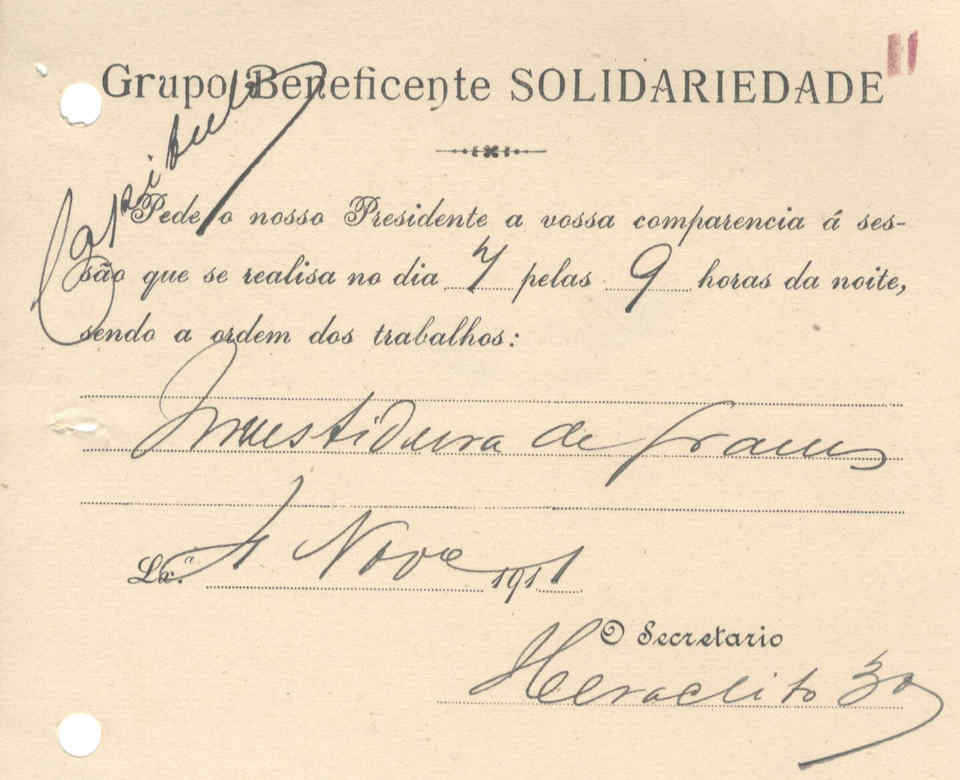 Grupo Beneficente SOLIDARIEDADE
Capitular
Pede o nosso Presidente a vossa comparencia á ses-
são que se realisa no dia 7 pelas 9 horas da noite,
sendo a ordem dos trabalhos:
Investidura de graus
Lx.ª 4 Nove 1911
O Secretario
Heraclito 3º